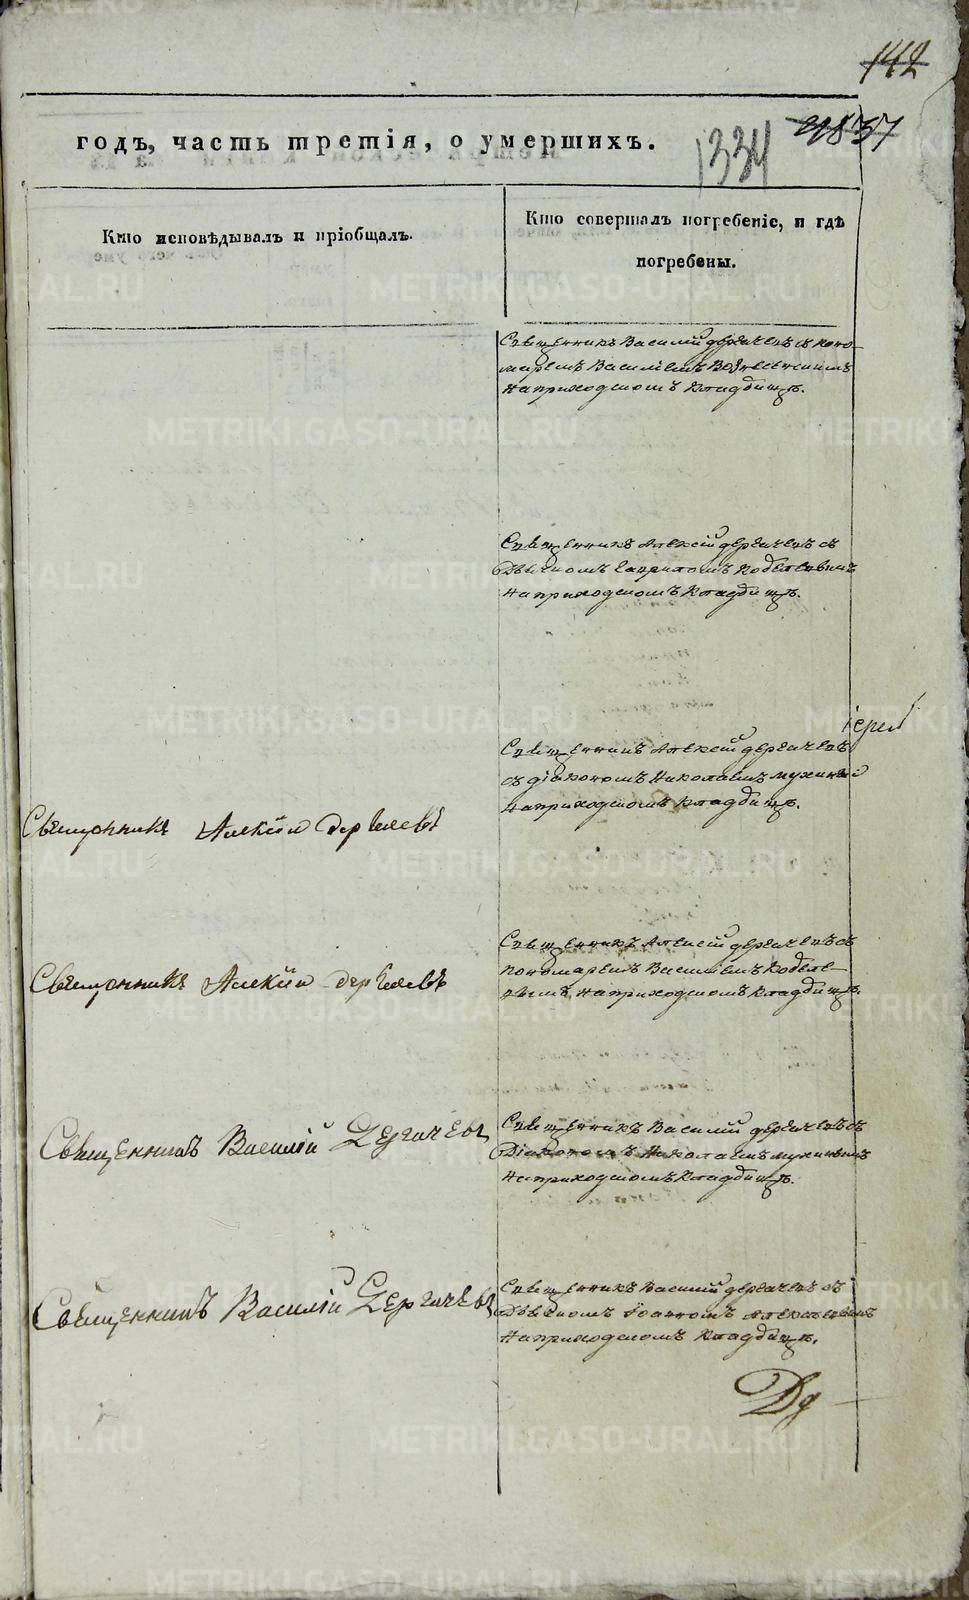 142
1837
334
годъ, часть третія, о умершихъ.
Кто исповѣдывалъ и пріобщалъ.
Кто совершалъ погребеніе, и гдѣ
погребены.
Священникъ Василій Дергачевъ съ поно-
маремъ Василіемъ Вознесенскимъ
на приходскомъ кладбищѣ.
Священникъ Алексій Дергачевъ съ
Дьячкомъ Гавриломъ Кобелевымъ
на приходскомъ кладбищѣ.
іерей
Священникъ Алексей Дергачевъ
съ діакономъ Николаемъ Мухинымъ
на приходскомъ кладбищѣ.
Священникъ Алексій Дергачевъ
Священникъ Алексей Дергачевъ съ
пономаремъ Василіемъ Кобеле-
вымъ на приходскомъ кладбищѣ.
Священникъ Алексій Дергачевъ
Священникъ Василій Дергачевъ съ
Діакономъ Николаемъ Мухинымъ
на приходскомъ кладбищѣ.
Священникъ Василій Дергачевъ
Священникъ Василій Дергачевъ съ
Дьячкомъ Іоанномъ
на приходскомъ кладбищѣ.
Священникъ Василій Дергачевъ
METRIKI.GASO-URAL.RU